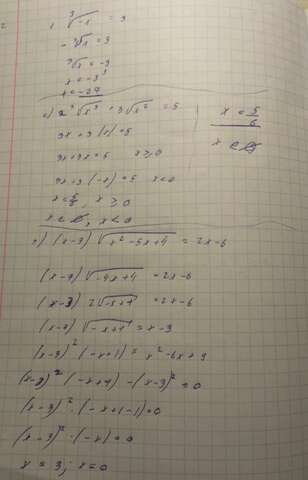 ∛(-x) = 3
-∛x = 3
∛x = -3
x = -3³
x = -27
3x + 3|x| = 5
3x + 3x = 5 x ≥ 0
3x + 3(-x) = 5 x < 0
x = 5/6, x ≥ 0
x ∈ ∅, x < 0
x = 5/6
x ∈ ∅
(x-3) √(x²-5x+4) = 2x-6
(x-3) √(-4x+4) = 2x-6
(x-3) 2√(-x+1) = 2x-6
(x-3) √(-x+1) = x-3
(x-3)² (-x+1) = x²-6x+9
(x-3)² (-x+1) - (x-3)² = 0
(x-3)² · (-x+1-1) = 0
(x-3)² · (-x) = 0
x = 3; x = 0